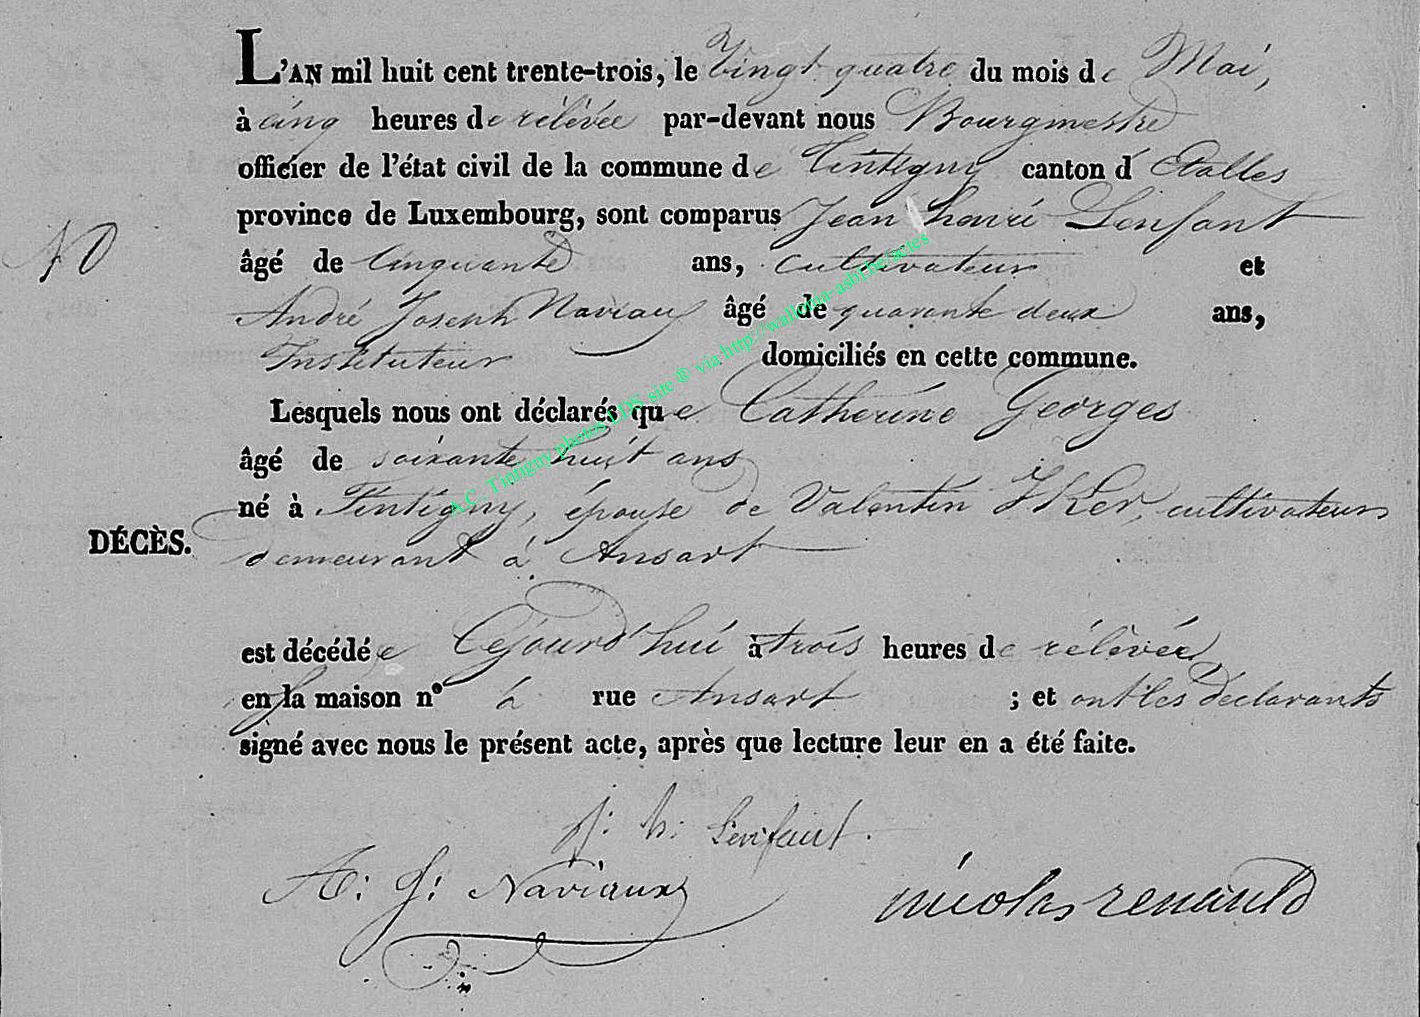 L'AN mil huit cent trente-trois, le Vingt quatre du mois de Mai,
à cinq heures de rélévée par-devant nous Bourgmestre
officier de l'état civil de la commune de Tintigny canton d'Etalles
province de Luxembourg, sont comparus Jean henri Lenfant
âgé de Cinquante ans, cultivateur et
André Joseph Naviaux âgé de quarante deux ans,
Instituteur domiciliés en cette commune.
Lesquels nous ont déclarés que Catherine Georges
âgé de soixante huit ans
né à Tintigny, épouse de Valentin cultivateur
DÉCÈS.
demeurant à Ansart
est décédée Cejourd'hui à trois heures de rélévée
en la maison n° à rue Ansart ; et ont les déclarants
signé avec nous le présent acte, après que lecture leur en a été faite.
j: h: Lenfant.
A: J: Naviaux
nicolas renauld
A.C. Tintigny photos LDS site ® via http://wallonia-asbl.be/actes